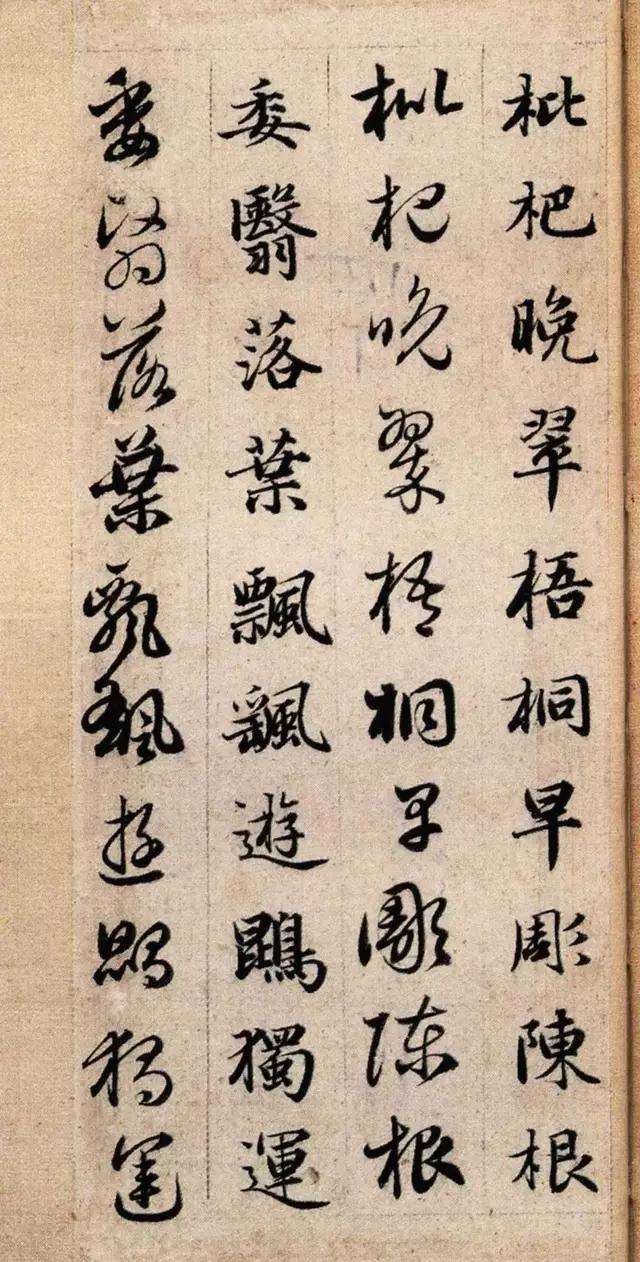 枇杷晚翠梧桐早彫陳根
枇杷晚翠梧桐早彫陳根
委翳落葉飄飖遊鵾獨運
委翳落葉飄飖遊鵾獨運